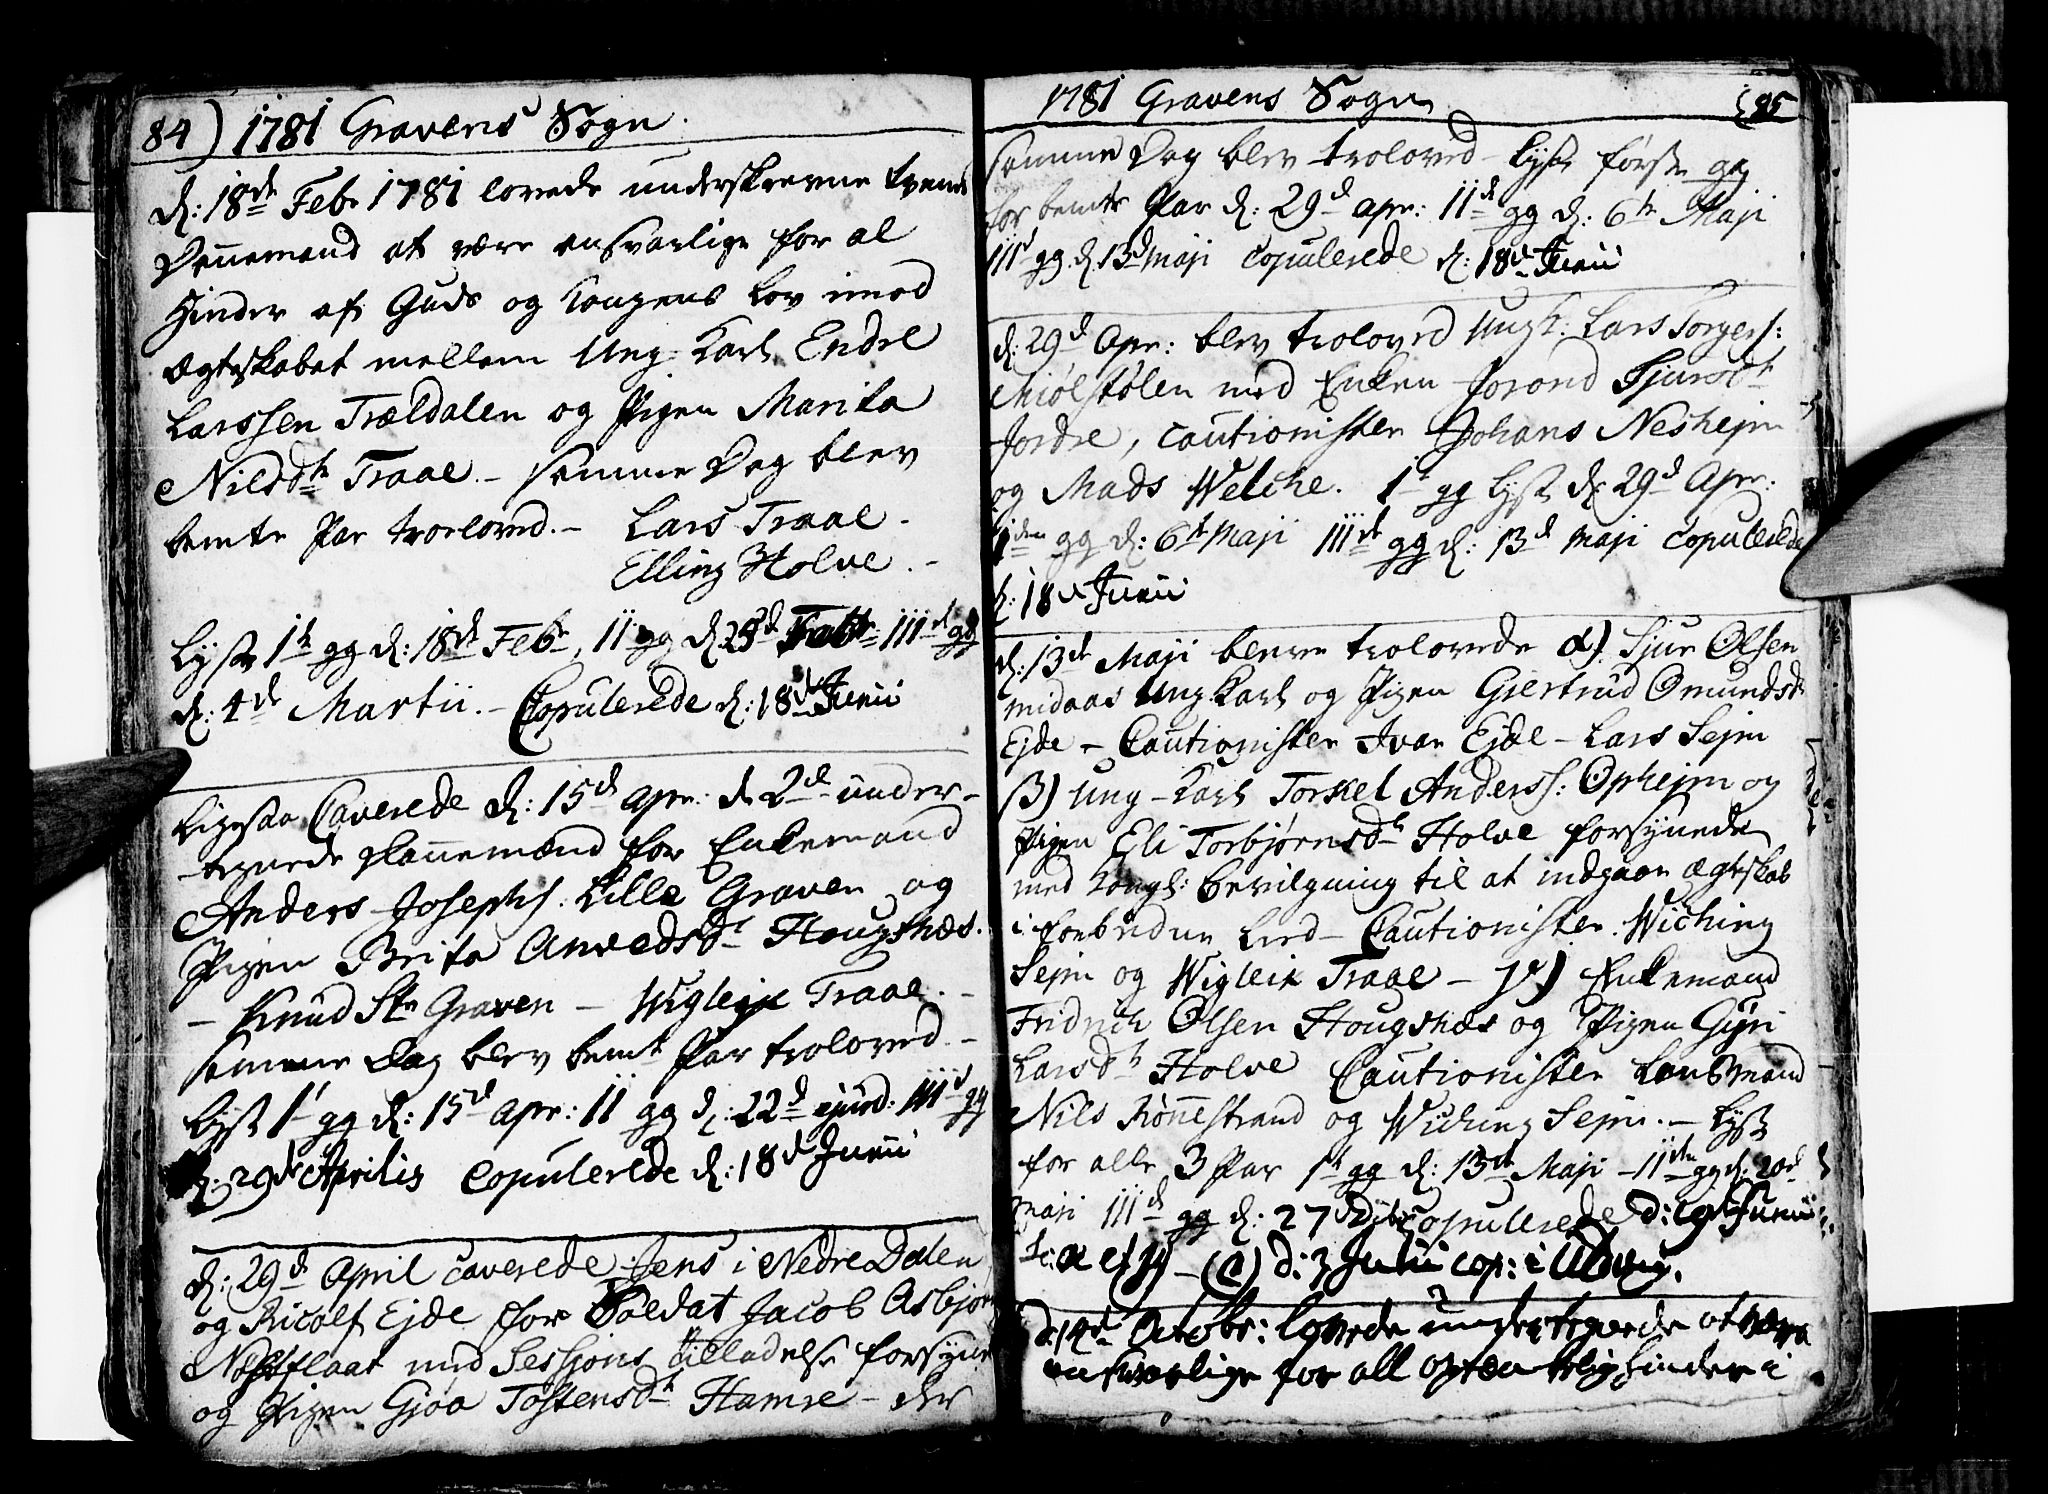 84) 1781 Gravens Sogn.
d: 18de Febr 1781 lovede underskrevne tvende
Dannemænd at være ansvarlige for al
Hinder af Guds og Kongens Lov imod
Ægteskabet mellem Ung Karl Endre
Larssen Trældalen og Pigen Marita
Nilsdtr Traae. – samme Dag blev
bemte Par troeloved. – Lars Traae. –
Elling Holve. –
Lyst 1te gg d: 18de Febr, II gg d. 25d Febr IIId gg
d: 4de Martii. – Copulerede d: 18d Junii
Ligesaa Caverede d: 15d Apr: de 2de under-
tegnede Dannemænd for Enkemand
Anders Josephs: Lille Graven og
Pigen Brita Anvedsdr Hougsnæs.
– Knud Str Graven – Wigleik Traae. –
samme Dag blev bemte Par troloved. –
Lyst 1t gg d: 15d Apr: II gg d: 22d ejusd: IIId gg
d: 29de Aprilis Copulerede d: 18d Junii
d: 29d April caverede Jens i Nedre Dalen
og Ricolf Ejde for Soldat Jacob Asbjørn
Næsflaat med Sessions Tilladelse forsynet
og Pigen Gjøa Tostensdtr Hamre – der
1781 Gravens Sogn (85
samme Dag blev troloved – Lyst første gg
for bemte Par d: 29d Apr: IId gg d: 6te Maji
IIId gg d 13d Maji Copulerede d: 18d Junii
d: 29d Apr: blev troloved Ungk: Lars Torgers:
Miølstølen med Enken Jorond Sjursdtr
Jordre, Cautionister Johans Nesheim
og Mads Welche. 1te gg Lyst d 29d Apr:
IIden gg d: 6te Maji IIIde gg d: 13d Maji Copulerede
d: 18de Junii
d: 13de Maji bleve trolovede α) Sjur Olsen
midaas Ung Karl og Pigen Gjertrud Omundsdr
Ejde – Cautionister Ivar Ejde – Lars Sejm
β) Ung-Karl Torkel Anderss: Ophejm og
Pigen Eli Torbjørnsdtr Holve forsynede
med Kongl: Bevilgning til at indgaae Ægteskab
i forbuden Leed – Cautionister Wiching
Sejm og Wigleik Traae – γ) Enkemand
Fridrich Olsen Hougsnæs og Pigen Gyri
Larsdtr Holve Cautionister Lensmand
Nils Rønnestrand og Wiching Sejm. – Lyst
for alle 3 Par 1te gg d: 13de Maji – IIden gg d: 20d
Maji IIId gg d: 27d Copulerede d: 19 Junii
sc: α et γ – (β) d: 3 Julii cop: i Uldvig.
d: 14d Octobr: lovede undertegnede at være
ansvarlige for all optænkelig Hinder i